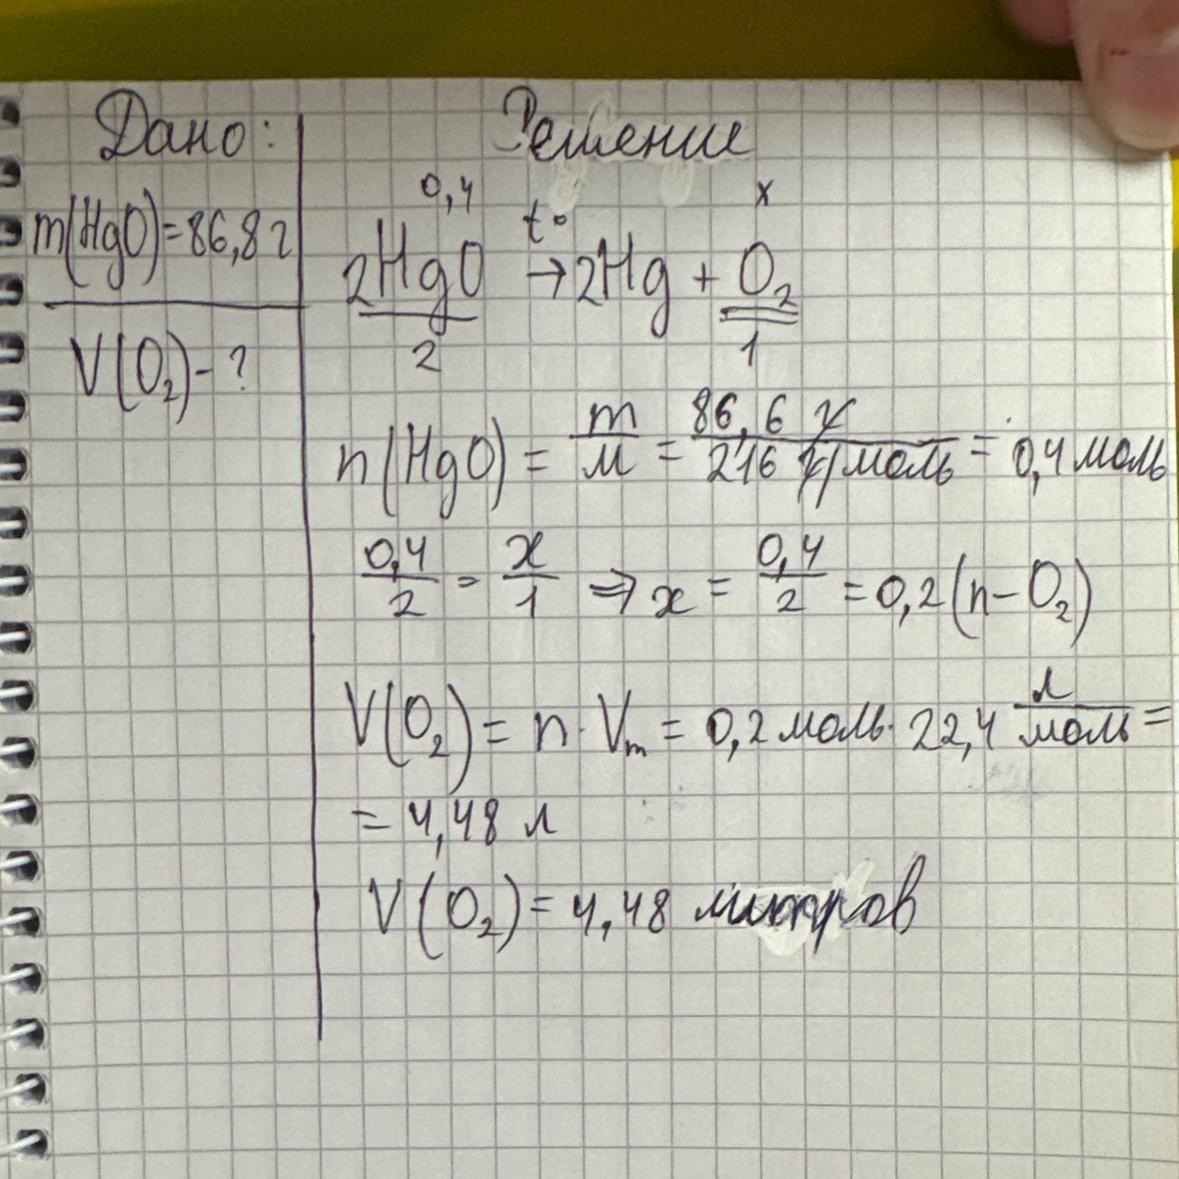 Дано:
m(HgO)=86,8г
V(O₂)-?
Решение
0,4 x
2HgO t° → 2Hg + O₂
2 1
n(HgO) = m/M = 86,6 г/216 г/моль = 0,4 моль
0,4/2 = x/1 ⇒ x = 0,4/2 = 0,2 (n-O₂)
V(O₂) = n · Vm = 0,2 моль · 22,4 л/моль =
= 4,48 л
V(O₂) = 4,48 литров